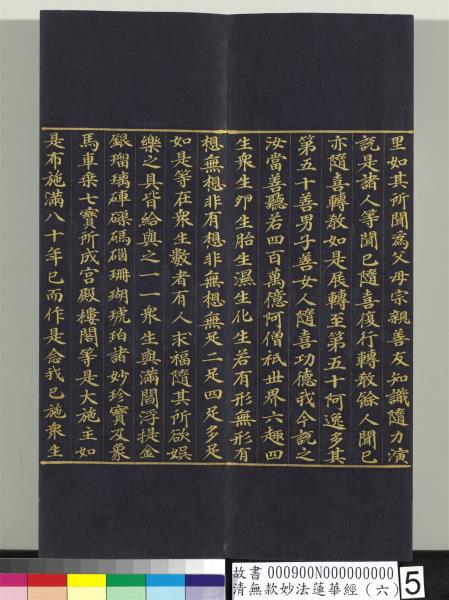 里如其所聞為父母宗親善友知識隨力演
說是諸人等聞已隨喜復行轉教餘人聞已
亦隨喜轉教如是展轉至第五十阿逸多其
第五十善男子善女人隨喜功德我今說之
汝當善聽若四百萬億阿僧祇世界六趣四
生眾生卵生胎生濕生化生若有形無形有
想無想非有想非無想無足二足四足多足
如是等在眾生數者有人求福隨其所欲娛
樂之具皆給與之一一眾生與滿閻浮提金
銀瑠璃硨磲碼碯珊瑚琥珀諸妙珍寶及象
馬車乘七寶所成宮殿樓閣等是大施主如
是布施滿八十年已而作是念我已施眾生
故書 000900N000000000
清無款妙法蓮華經（六）
5